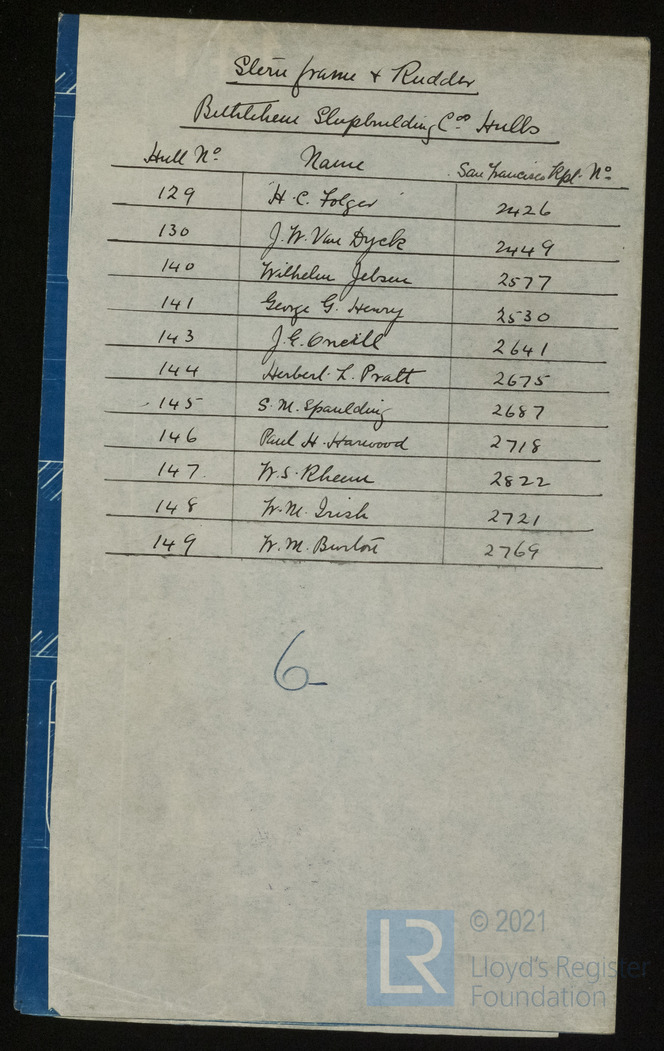 Stern frame & Rudder
Bethlehem Shipbuilding Coo. Hulls
Hull No. Name San Francisco Rpt. No.
129 H. C. Folger 2426
130 J. W. Van Dyck 2449
140 Wilhelm Jebsen 2577
141 George G. Henry 2530
143 J. E. Oneill 2641
144 Herbert. L. Pratt 2675
145 S. M. Spaulding 2687
146 Paul H. Harwood 2718
147. W. S. Rheem 2822
148 W. M. Irish 2721
149 W. M. Burton 2769
6
© 2021
LR
Lloyd's Register
Foundation